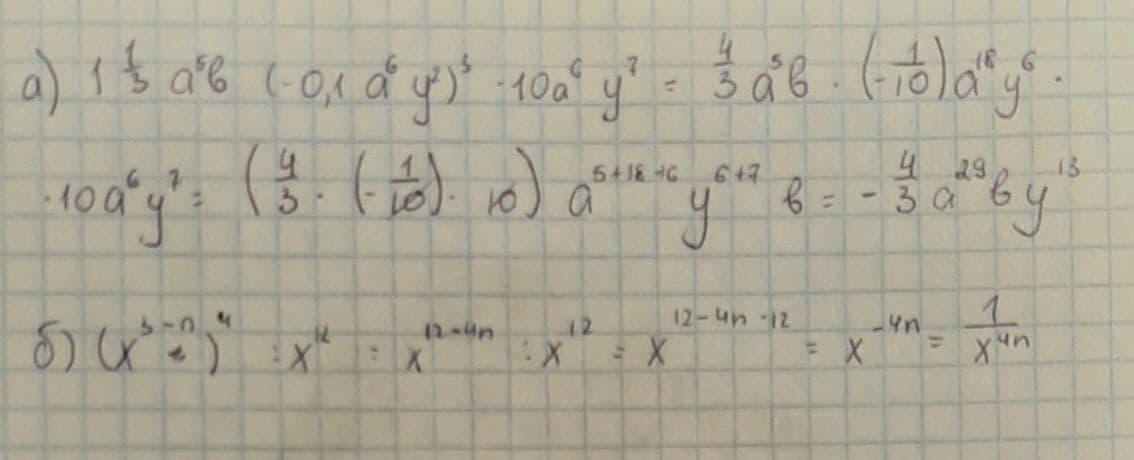 а) 1 1/3 a⁵b (-0,1 a⁶ y²)³ · 10a⁶ y⁷ = 4/3 a⁵b · (-1/10) a¹⁸ y⁶ ·
· 10a⁶ y⁷ = (4/3 · (-1/10) · 10) a⁵⁺¹⁸⁺⁶ y⁶⁺⁷ b = - 4/3 a²⁹ b y¹³
б) (x³⁻ⁿ)⁴ : x¹² = x¹²⁻⁴ⁿ : x¹² = x¹²⁻⁴ⁿ⁻¹² = x⁻⁴ⁿ = 1/x⁴ⁿ